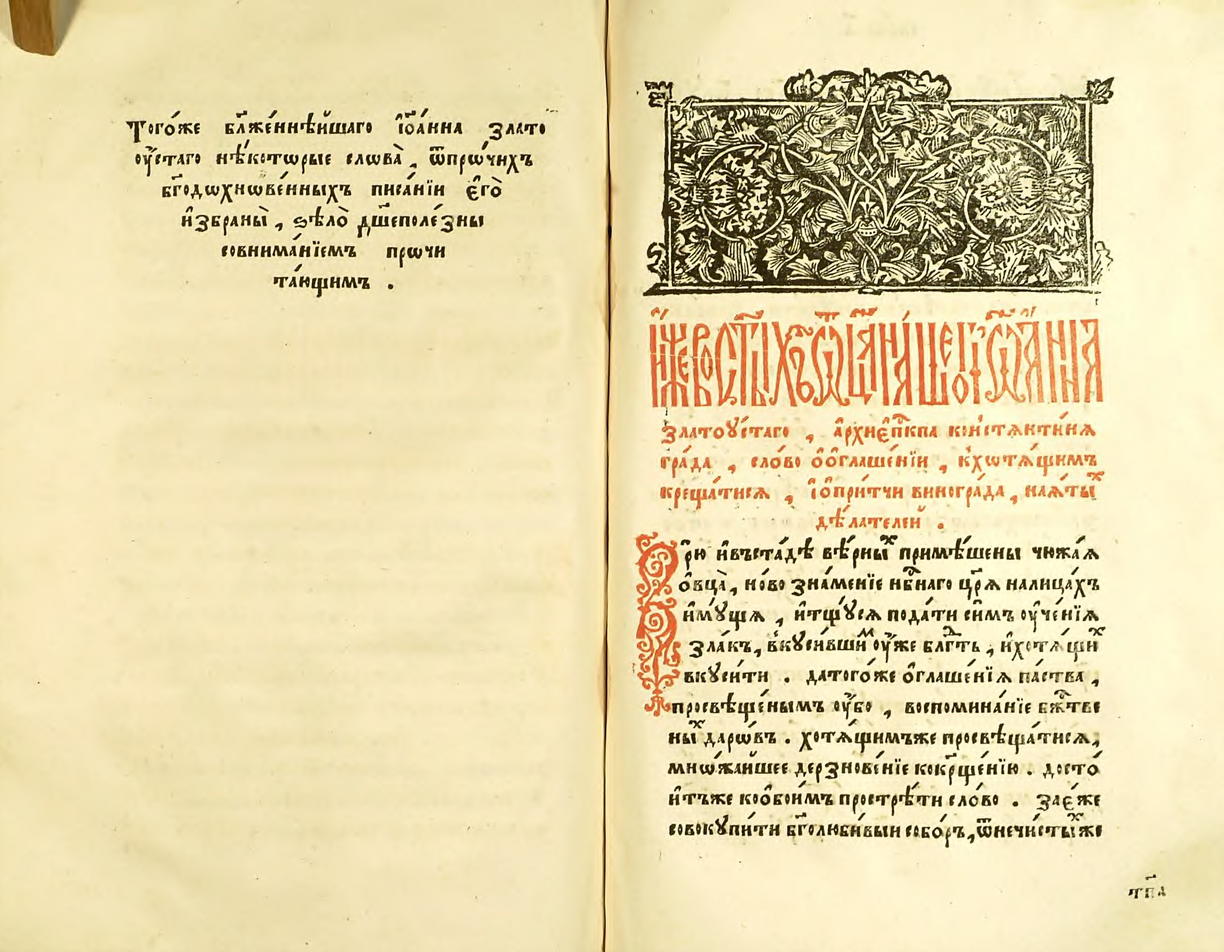 Тогѡ́же бл҃же́ннѣйшаго і҆оа́нна злато
оу҆́стаго нѣ́которые словѐса̀, ѿпро́чихъ
бг҃одꙋхнове́нныхъ писа́нїи є҆гѡ̀
и҆збраны̀, ѕѣлѡ̀ дш҃еполе́зны
совнима́нїемъ прочи
та́ющимъ .
И҆́же во ст҃ы́хъ ѻ҆ц҃а̀ на́шегѡ і҆ѡа́нна
златоꙋ́стаго , а҆рхїеп҃кпа ко́нстѧнти́нѧ
гра́да , сло́во ѡ҆ѡ҆глаше́нїи , кхотѧ́щимъ
креща́тисѧ , і҆ѡ҆при́тчи виногра́да , наѧ́ты́х
дѣ́лателей .
Зрю̀ и҆въста́дѣ вѣ́рных примѣ́шены чюжа́ѧ
ѻ҆́вца̀, но́во зна́менїе нб҃наго цр҃ѧ̀ налица́хъ
и҆мꙋ́щѧ , и҆тщꙋ́сѧ пода́ти си́мъ оу҆че́нїѧ
зла́къ, вкꙋси́вшим оу҆́же блг҃да́ть , и҆хотѧ́щих
вкꙋси́ти . датого́же ѡ҆глаше́нїѧ па́ства ,
просвѣще́нымъ оу҆́бо , воспомина́нїе бж҃тве
ных даро́въ . хотѧ́щимъже просвѣща́тисѧ,
мно́жайшее дерзнове́нїе кокрщ҃е́нїю . досто́
и҆тъже коѻ҆бои́мъ простре́ти сло́во . зае́же
совокꙋпи́ти бг҃олюби́выи собо́ръ, ѿнечи́стых же
тп҃а